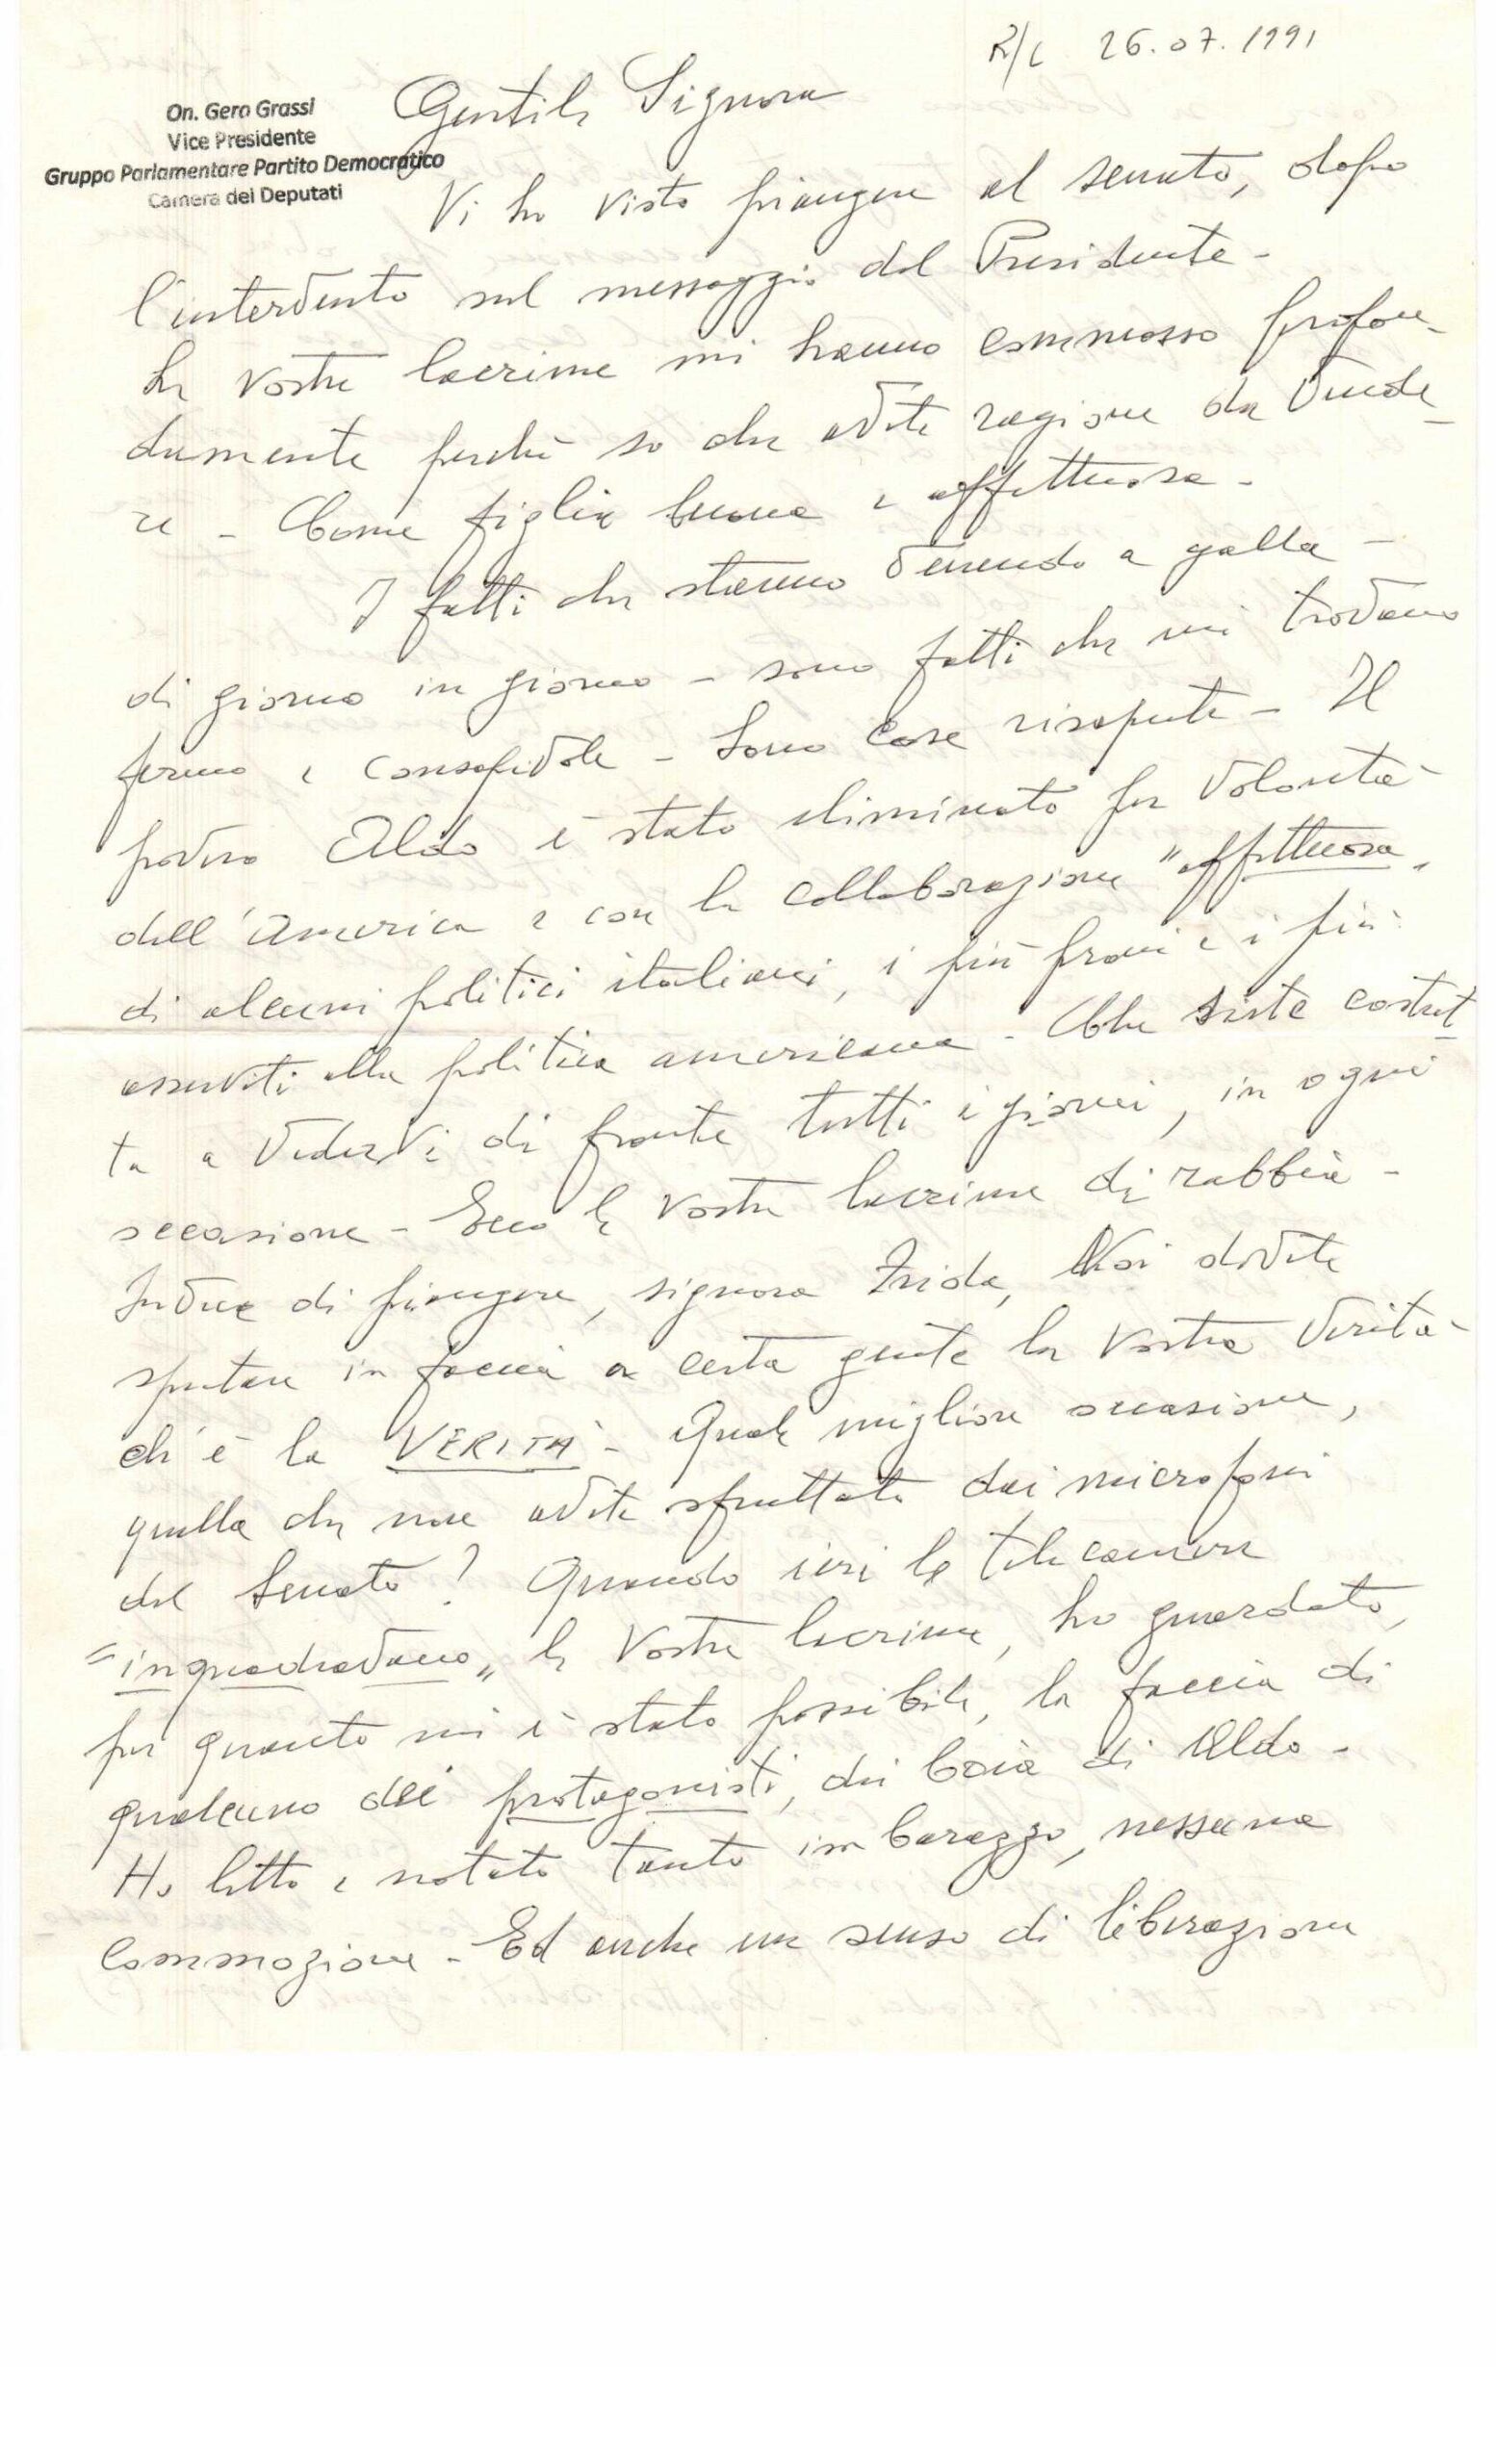 R/C 26.07.1991
On. Gero Grassi
Vice Presidente
Gruppo Parlamentare Partito Democratico
Camera dei Deputati
Gentile Signora
Vi ho visto piangere al senato, dopo
l'intervento sul messaggio del Presidente -
Le vostre lacrime mi hanno commosso profon-
damente perché so che avete ragione da vende-
re - Come figlia buona e affettuosa -
I fatti che stanno venendo a galla -
di giorno in giorno - sono fatti che mi trovano
fermo e consapevole - Sono cose risapute - Il
povero Aldo è stato eliminato per volontà
dell'America e con la collaborazione "affettuosa"
di alcuni politici italiani, i più proni e i più
asserviti alla politica americana - Che siete costret-
ta a vedervi di fronte tutti i giorni, in ogni
occasione - Ecco le vostre lacrime di rabbia -
Invece di piangere, signora Frida, Voi dovete
sputare in faccia a certa gente la vostra verità
ch'è la VERITÀ - Quale migliore occasione,
quella che non avete sfruttato dai microfoni
del Senato? Quando ieri le telecamere
"inquadravano" le vostre lacrime, ho guardato,
per quanto mi è stato possibile, la faccia di
qualcuno dei protagonisti, dei boia di Aldo -
Ho letto e notato tanto imbarazzo, nessuna
commozione - Ed anche un senso di liberazione